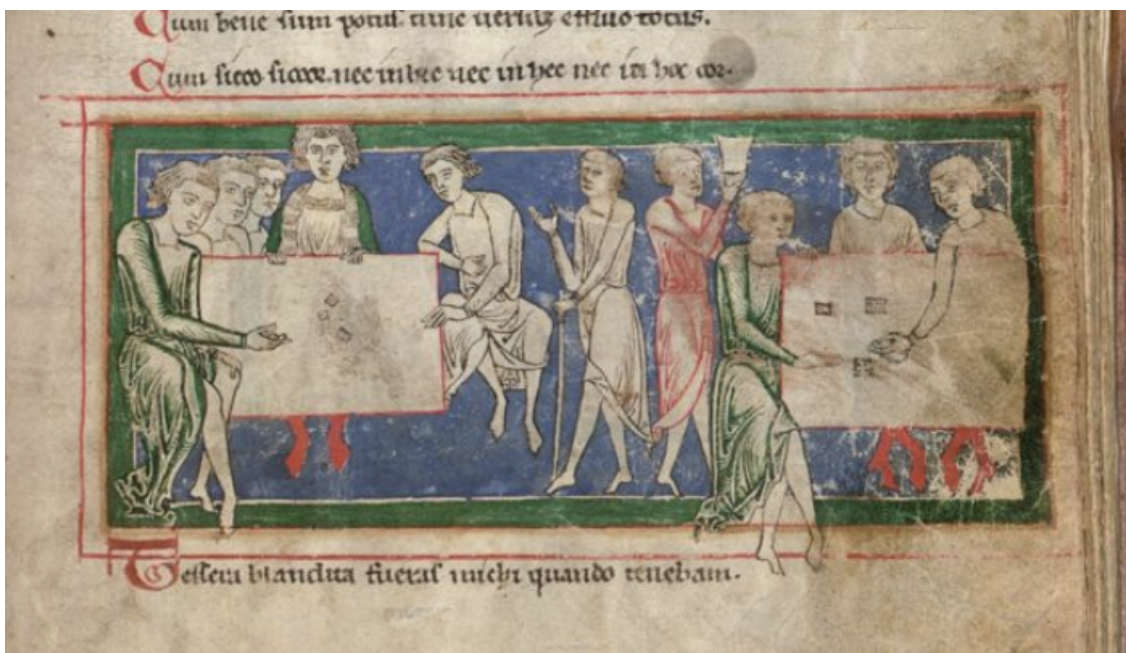 Cum bene sum potus. tunc uersib; effluo totus.
Cum nec in hic nec in hec nec in hoc cor.
Tessera blandita fueras michi quando tenebam.